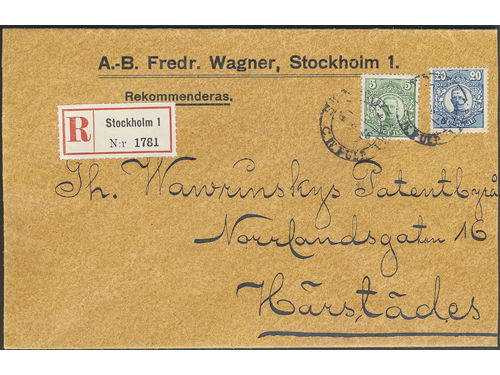 A.-B. Fredr. Wagner, Stockholm 1.
Rekommenderas.
5 5
20 20
R Stockholm 1
N:r 1781
Th. Wawrinskys Patentbyrå
Norrlandsgatan 16
Härstädes